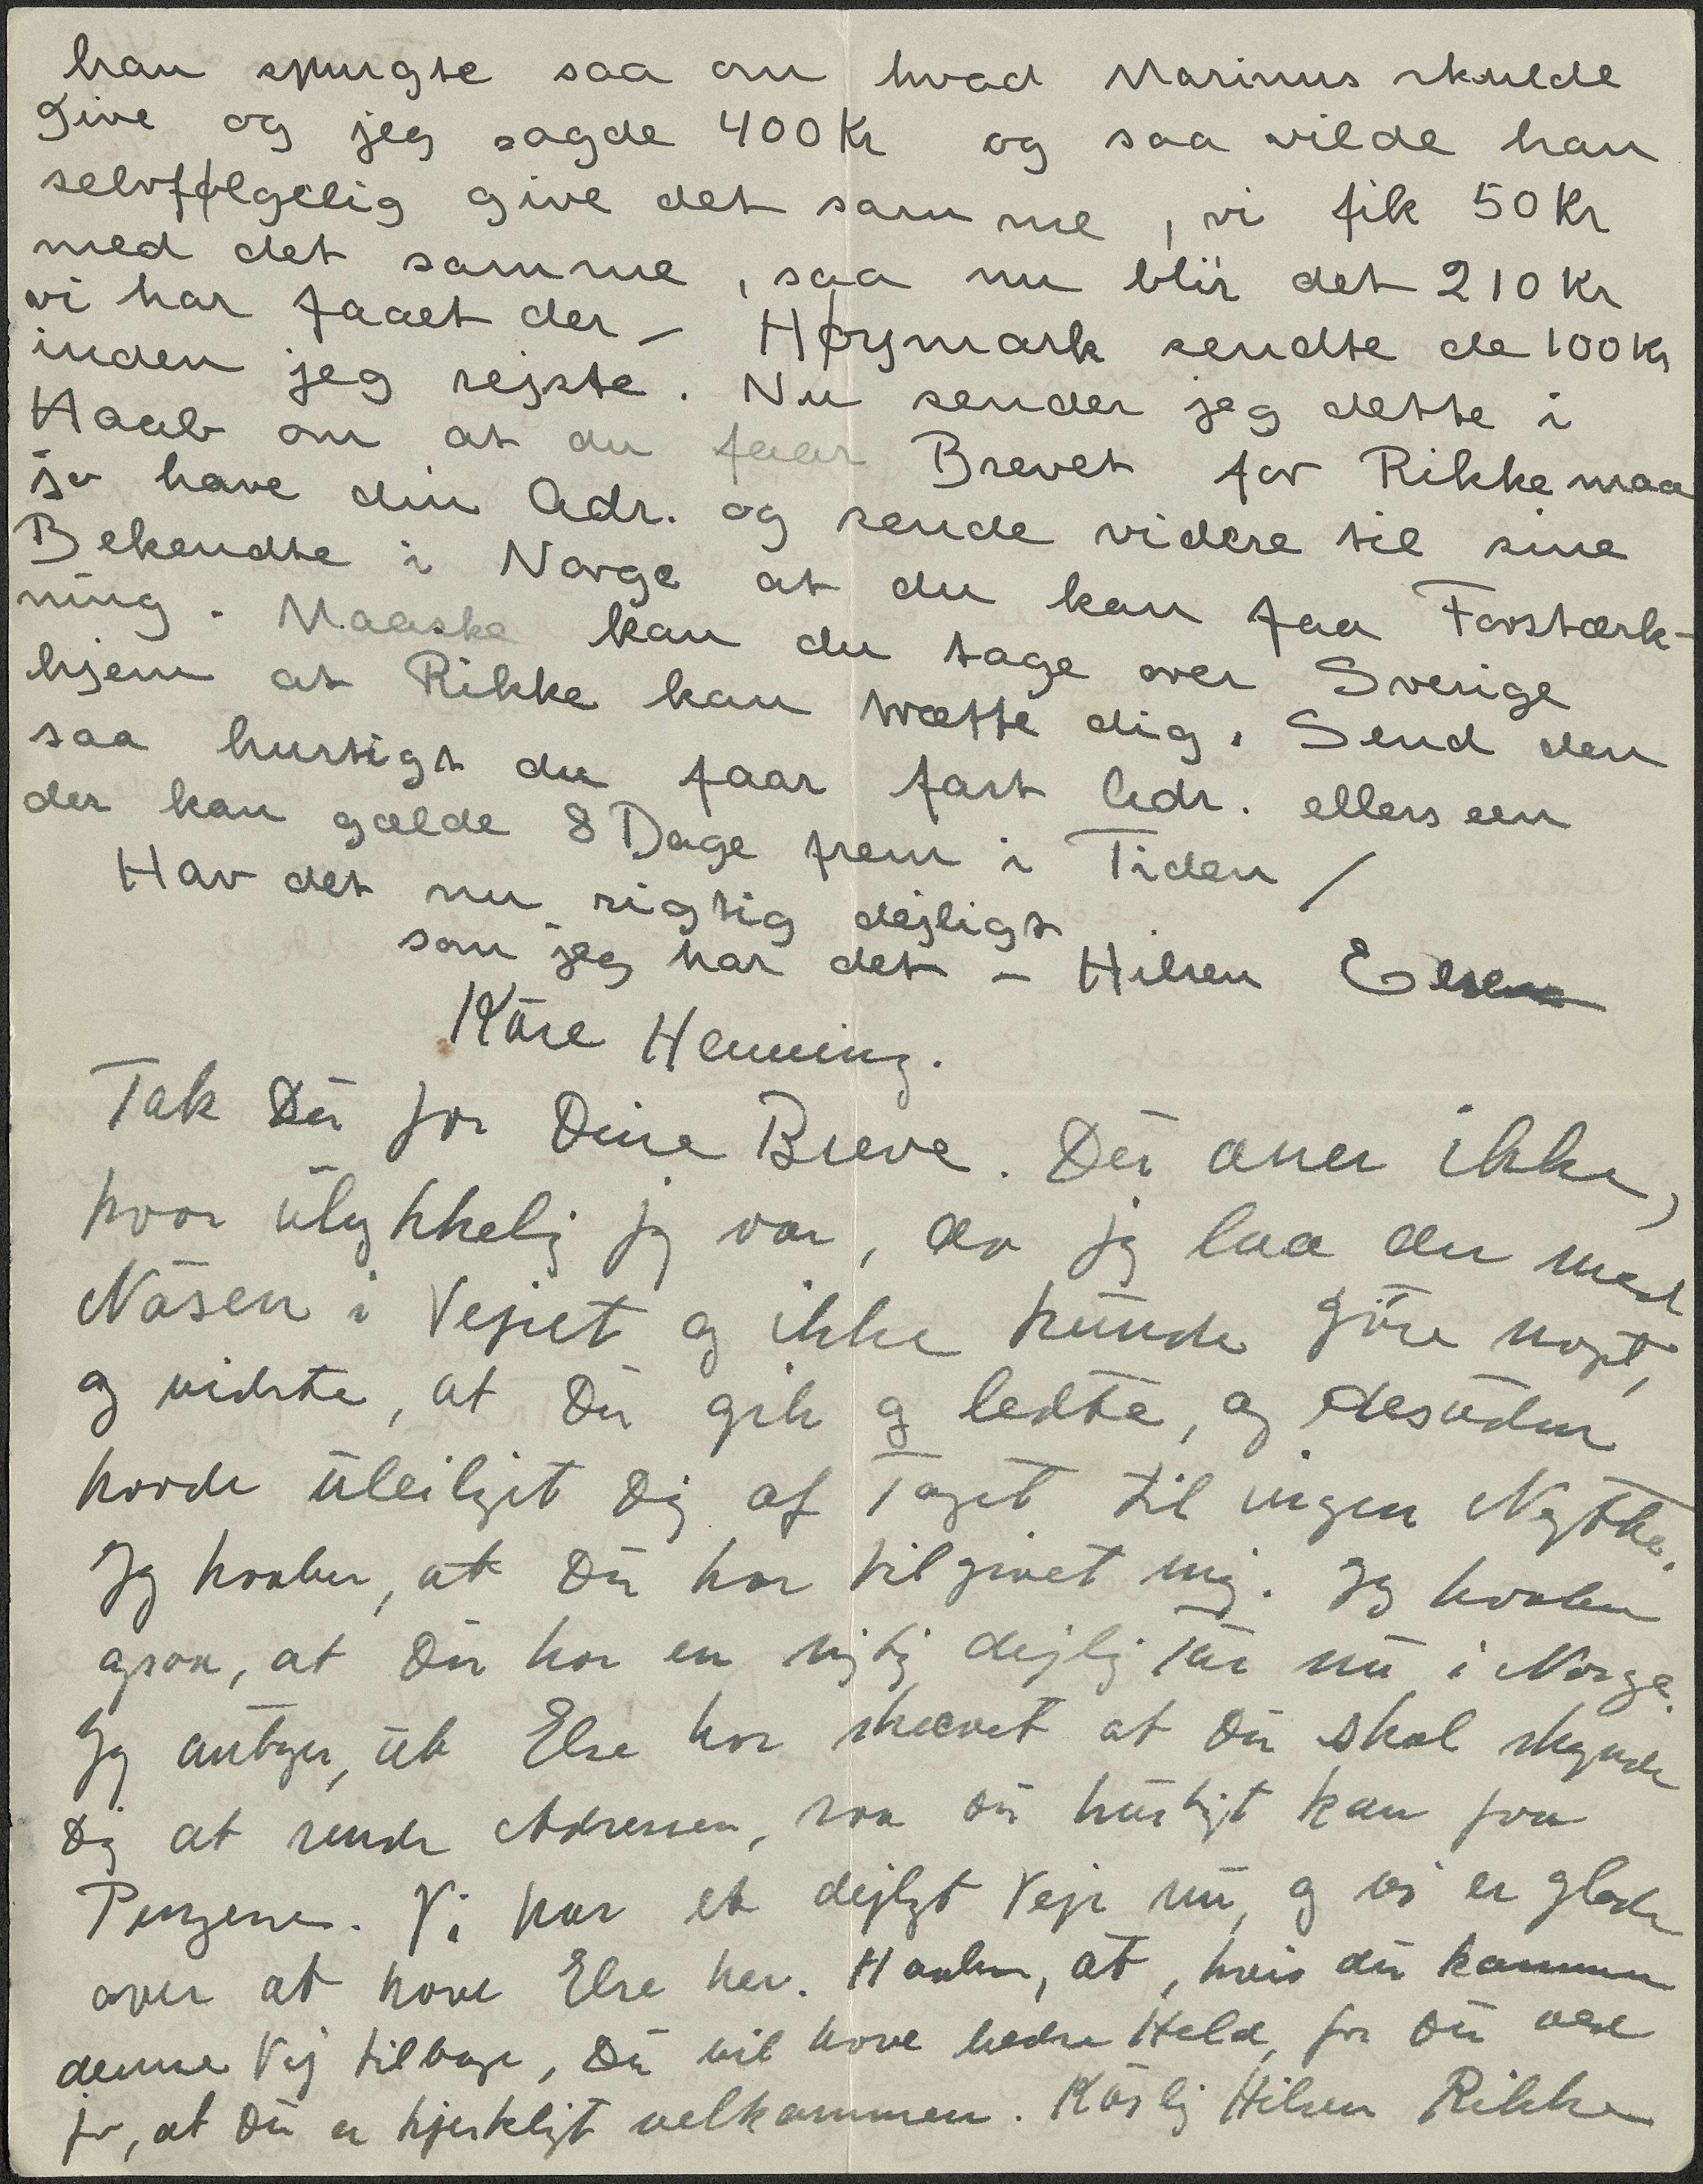 han spurgte saa om hvad Marinus skulde
give og jeg sagde 400 Kr og saa vilde han
selvfølgelig give det samme, vi fik 50 Kr
med det samme, saa nu blir det 210 Kr
vi har faaet der – Høymark sendte de 100 Kr
inden jeg rejste. Nu sender jeg dette i
Haab om at du faar Brevet for Rikke maa
jo have din Adr. og sende videre til sine
Bekendte i Norge at du kan faa Forstærk-
ning. Maaske kan du tage over Sverige
hjem at Rikke kan træffe dig. Send den
saa hurtigt du faar fast Adr. ellers een
der kan gælde 8 Dage frem i Tiden /
Hav det nu rigtig dejligt
som jeg har det – Hilsen Else
Käre Henning.
Tak Du for Dine Breve. Du aner ikke,
hvor ulykkelig jeg var, da jeg laa der med
Näsen i Vejret og ikke kunde göre noget,
og vidste, at Du gik og ledte, og desuden
havde uleiliget Dig af Toget til ingen Nytte.
Jeg haaber, at Du har tilgivet mig. Jeg haaber
ogsaa, at Du har en rigtig dejlig Tur nu i Norge.
Jeg antager, at Else har skrevet at Du skal skynde
Dig at sende Adressen, saa Du hurtigt kan faa
Pengene. Vi har et dejligt Vejr nu, og vi er glade
over at have Else her. Haaber, at, hvis du kommer
denne Vej tilbage, Du vil have bedre Held, for Du ved
jo, at Du er hjerteligt velkommen. Kärlig Hilsen Rikke